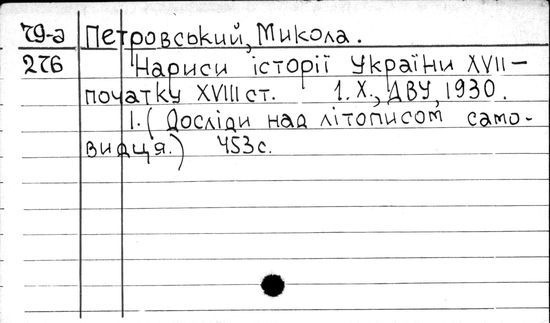 79-а Петровський, Микола.
276 Нариси історії України XVII–
початку XVIII ст. 1. Х., ДВУ, 1930.
1. (Досліди над літописом само-
видця.) 453 с.